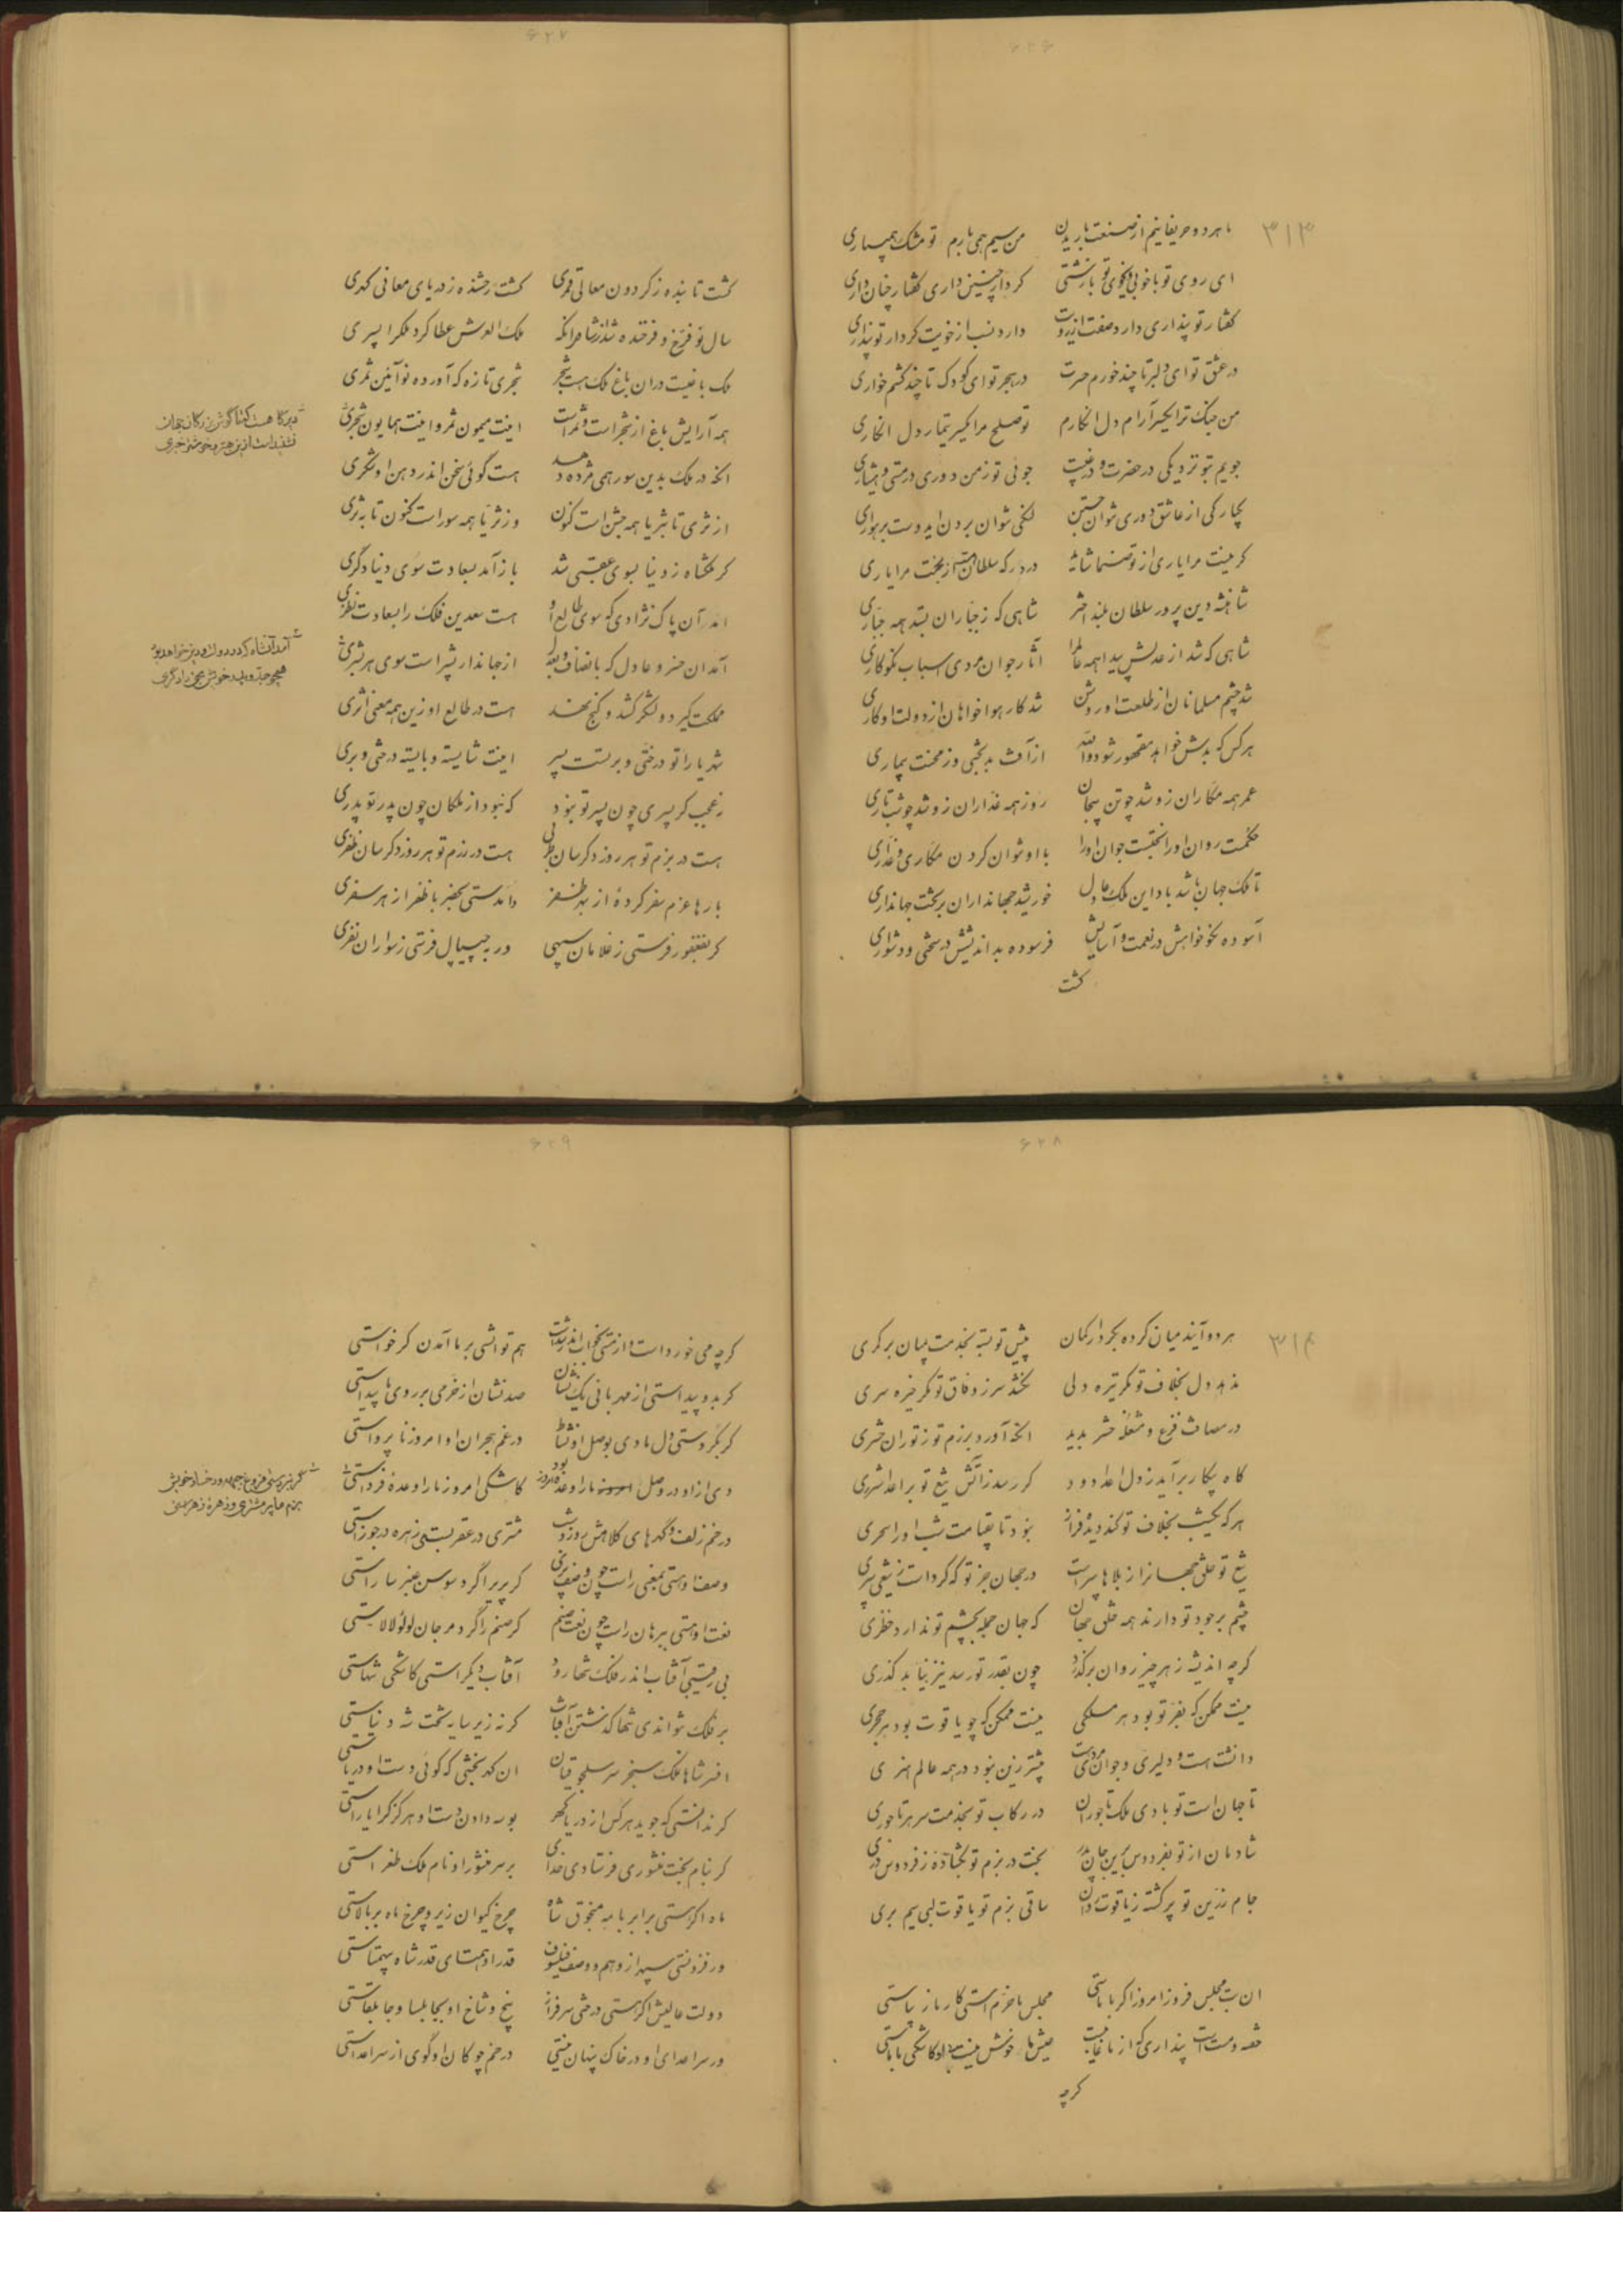 ۶۲۶
۳۱۳
ما هر دو حریفانیم از صنعت باریدن من سیم همی بارم تو مشک همیباری
ای روی تو با خوبی وی خوی تو با زشتی کردار چنین داری گفتار چنان داری
گفتار تو پنداری دارد صفت از رویت دارد نسب از خویت کردار تو پنداری
در عشق تو ای دلبر تا چند خورم حسرت در هجر تو ای کودک تا چند کشم خواری
من جنگ ترا گیرم آرام دل انگارم تو صلح مرا گیری تیمار دل انگاری
جویم بتو نزدیکی در حضرت و در غیبت جوئی تو ز من دوری در مستی و هشیاری
بیچارگی از عاشق دوری نتوان جستن لنگی نتوان بردن ای دوست برهواری
گر نیست مرا یاری از تو صنما شاید در درگه سلطان هست از بخت مرا یاری
شاهنشه دین پرور سلطان بلند اختر شاهی که ز جباران بستد همه جباری
شاهی که شد از عدلش پیدا همه عالم را آثار جوانمردی اسباب نکوکاری
شد چشم مسلمانان از طلعت او روشن شد کار هواخواهان از دولت او کاری
هر کس که بدش خواهد مقهور شود والله از آفت بدبختی وز محنت بیماری
عمر همه مکاران زو شد چو تن بیجان روز همه غداران زو شد چو شب تاری
حکمت روان او را بختست جوان او را با او نتوان کردن مکاری و غداری
تا ملک جهان باشد باد این ملک عادل خورشید جهانداران بر تخت جهانداری
آسوده نکو خواهش در نعمت و آسایش فرسوده بد اندیشش در سختی و دشواری
گشت
۶۲۷
گشت تابنده ز گردون معالی قمری گشت رخشنده ز دریای معانی گهری
سال نو فرخ و فرخنده شد از شاه مرانکه ملک العرش عطا کرد ملکرا پسری
ملک باغیست در ان باغ ملک هست شجر شجری تازه که آورده نوآئین ثمری
همه آرایش باغ از شجر است و ثمر است اینت میمون ثمر و اینت همایون شجری
انکه در ملک بدین سور همی مژده دهد هست گوئی سخن اندر دهن او شکری
از ثری تا بثریا همه جشن است کنون وز ثریا همه سور است کنون تا بثری
گر ملکشاه ز دنیا بسوی عقبی شد باز آمد بسعادت سوی دنیا دگری
آمد آن پاک نژادی که سوی طالع او هست سعدین فلک را بسعادت نظری
آمد ان خسرو عادل که بانصاف و بعدل از جهاندار بشیر است سوی هر بشری
مملکت گیرد و لشکر کشد و گنج نهد هست در طالع او زین همه معنی اثری
شهریارا تو درختی و برتست پسر اینت شایسته و بایسته درختی و بری
نه عجب گر پسری چون پسر تو نبود که نبود از ملکان چون پدر تو پدری
هست در بزم تو هر روز دگرسان طربی هست در رزم تو هر روز دگرسان ظفری
بارها عزم سفر کردهٔ از بهر ظفر وامدستی بحضر با ظفر از هر سفری
گر بفغفور فرستی ز غلامان سپهی ور بجیپال فرستی ز سواران نفری
۶۲۸
۳۱۴
هر دو آیند میان کرده بکردار کمان پیش تو بسته بخدمت بمیان بر کمری
ننهد دل بخلاف تو مگر تیره دلی نکشد سر ز وفاق تو مگر خیره سری
در مصاف فزع و مشغلهٔ حشر بدید انکه آورد برزم تو ز توران حشری
گاه پیکار برآید ز دل اعدا دود گر رسد زاتش تیغ تو بر اعدا شرری
هر که یکشب بخلاف تو کند دیده فراز نبود تا بقیامت شب او را سحری
تیغ تو خلق جهانرا ز بلاها سپر است در جهان جز تو که کرد است ز تیغی سپری
چشم بر جود تو دارند همه خلق جهان که جهان جمله بچشم تو ندارد خطری
گرچه اندیشه ز هر چیز روان برگذرد چون بقدر تو رسد نیز نیابد گذری
نیست ممکن که بفر تو بود هر ملکی نیست ممکن که چو یاقوت بود هر حجری
دانشت هست و دلیری و جوانمردی هست بیشتر زین نبود در همه عالم هنری
تا جهان است تو بادی ملک تاجوران در رکاب تو بخدمت سر هر تاجوری
شادمان از تو بفردوس برین جان پدر بخت در بزم تو بگشاده ز فردوس دری
جام زرین تو پر گشته ز یاقوت روان ساقی بزم تو یاقوت لبی سیم بری
ان بت مجلس فروز امروز اگر با ماستی مجلس ما خرم استی کار ما زیباستی
خفته و مست است پنداری که از ما غایبست عیش ما خوش نیست بی او کاشکی با ماستی
گرچه
۶۲۹
گرچه می خورد است و از مستی بخواب اندر شدست هم توانستی بر ما آمدن گر خواستی
گر بدو پیداستی از مهربانی یک نشان صد نشان از خرمی بر روی ما پیداستی
گر نگردستی دل ما دی بوصل او نشاط در غم هجران او امروز ناپرواستی
دی از او در وصل بود ما را وعدهٔ امروز کاشکی امروز ما را وعدهٔ فرداستی
در خم زلف و گره های کلاهش روز و شب مشتری در عقربستی زهره در جوزاستی
وصف او هستی بمعنی راست چون وصف پری گر پریرا گرد سوسن عنبر ساراستی
نعت او هستی ببرهان راست چون نعت صنم گر صنم را گرد مرجان لؤلؤ لالاستی
بی رقیبی آفتاب اندر فلک تنها رود آفتاب دیگر استی کاشکی تنهاستی
بر فلک نتواندی تنها گذشتن آفتاب گر نه زیر سایهٔ تخت شه دنیاستی
افسر شاهان ملک سنجر سر سلجوقیان ان گهر بخشی که گوئی دست او دریاستی
گر ندانستی که جوید هر کس از دریا گهر بوسه دادن دست او هرگز کرا یاراستی
گر بنام بخت منشوری فرستادی خدای بر سر منشور او نام ملک طغراستی
ماه اگر هستی برابر با مه منجوق شاه چرخ کیوان زیر و چرخ ماه بر بالاستی
ور فزونستی سپهر از وهم و وصف فیلسوف قدر او همتای قدر شاه بیهمتاستی
دولت عالیش اگر هستی درختی سرفراز بیخ و شاخ او بجابلسا و جابلقاستی
ور سر اعدای او در خاک پنهان نیستی در خم چوگان او گوی از سر اعداستی